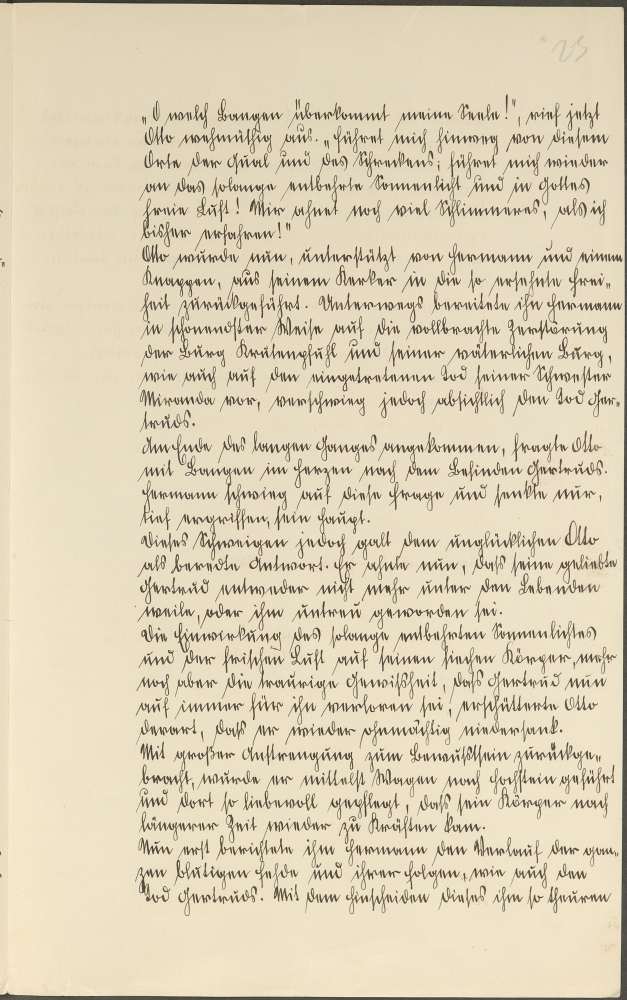 23
„O welch Bangen überkommt meine Seele!", rief jetzt
Otto wehmüthig aus. „Führet mich hinweg von diesem
Orte der Qual und des Schreckens; führet mich wieder
an das solange entbehrte Sonnenlicht und in Gottes
freie Luft! Mir ahnet noch viel Schlimmeres, als ich
bisher erfahren!"
Otto wurde nun, unterstützt von Hermann und einem
Knappen, aus seinem Kerker in die so ersehnte Frei-
heit zurückgeführt. Unterwegs bereitete ihn Hermann
in schonendster Weise auf die vollbrachte Zerstörung
der Burg Krutenpfuhl und seiner väterlichen Burg,
wie auch auf den eingetretenen Tod seiner Schwester
Miranda vor, verschwieg jedoch absichtlich den Tod Ger-
truds.
Am Ende des langen Ganges angekommen, fragte Otto
mit Bangen im Herzen nach dem Befinden Gertruds.
Hermann schwieg auf diese Frage und senkte nur,
tief ergriffen, sein Haupt.
Dieses Schweigen jedoch galt dem unglücklichen Otto
als beredte Antwort. Er ahnte nun, dass seine geliebte
Gertrud entweder nicht mehr unter den Lebenden
weile, oder ihm untreu geworden sei.
Die Einwirkung des solange entbehrten Sonnenlichtes
und der frischen Luft auf seinen siechen Körper, mehr
noch aber die traurige Gewissheit, dass Gertrud nun
auf immer für ihn verloren sei, erschütterte Otto
derart, dass er wieder ohnmächtig niedersank.
Mit großer Anstrengung zum Bewusstsein zurückge-
bracht, wurde er mittelst Wagen nach Hochstein geführt
und dort so liebevoll gepflegt, dass sein Körper nach
längerer Zeit wieder zu Kräften kam.
Nun erst berichtete ihm Hermann den Verlauf der gan-
zen blutigen Fehde und ihrer Folgen, wie auch den
Tod Gertruds. Mit dem Hinscheiden dieses ihm so theuren